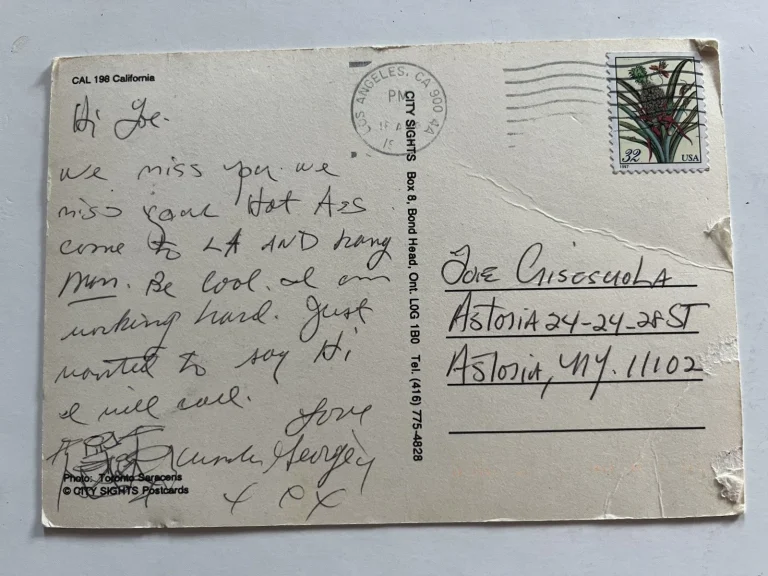 CAL 198 California
Hi Joe.
we miss you we
miss your Hot Ass
come to LA AND hang
Man. Be Cool. I am
working hard. Just
wanted to say Hi
I will call.
Love
Georgey
X X
Photo: Toronto Saracens
© CITY SIGHTS Postcards
CITY SIGHTS Box 8, Bond Head, Ont. L0G 1B0 Tel. (416) 775-4828
LOS ANGELES, CA 900
PM
32 USA
1997
JOE
Astoria 24-24-28 ST
Astoria, NY. 11102